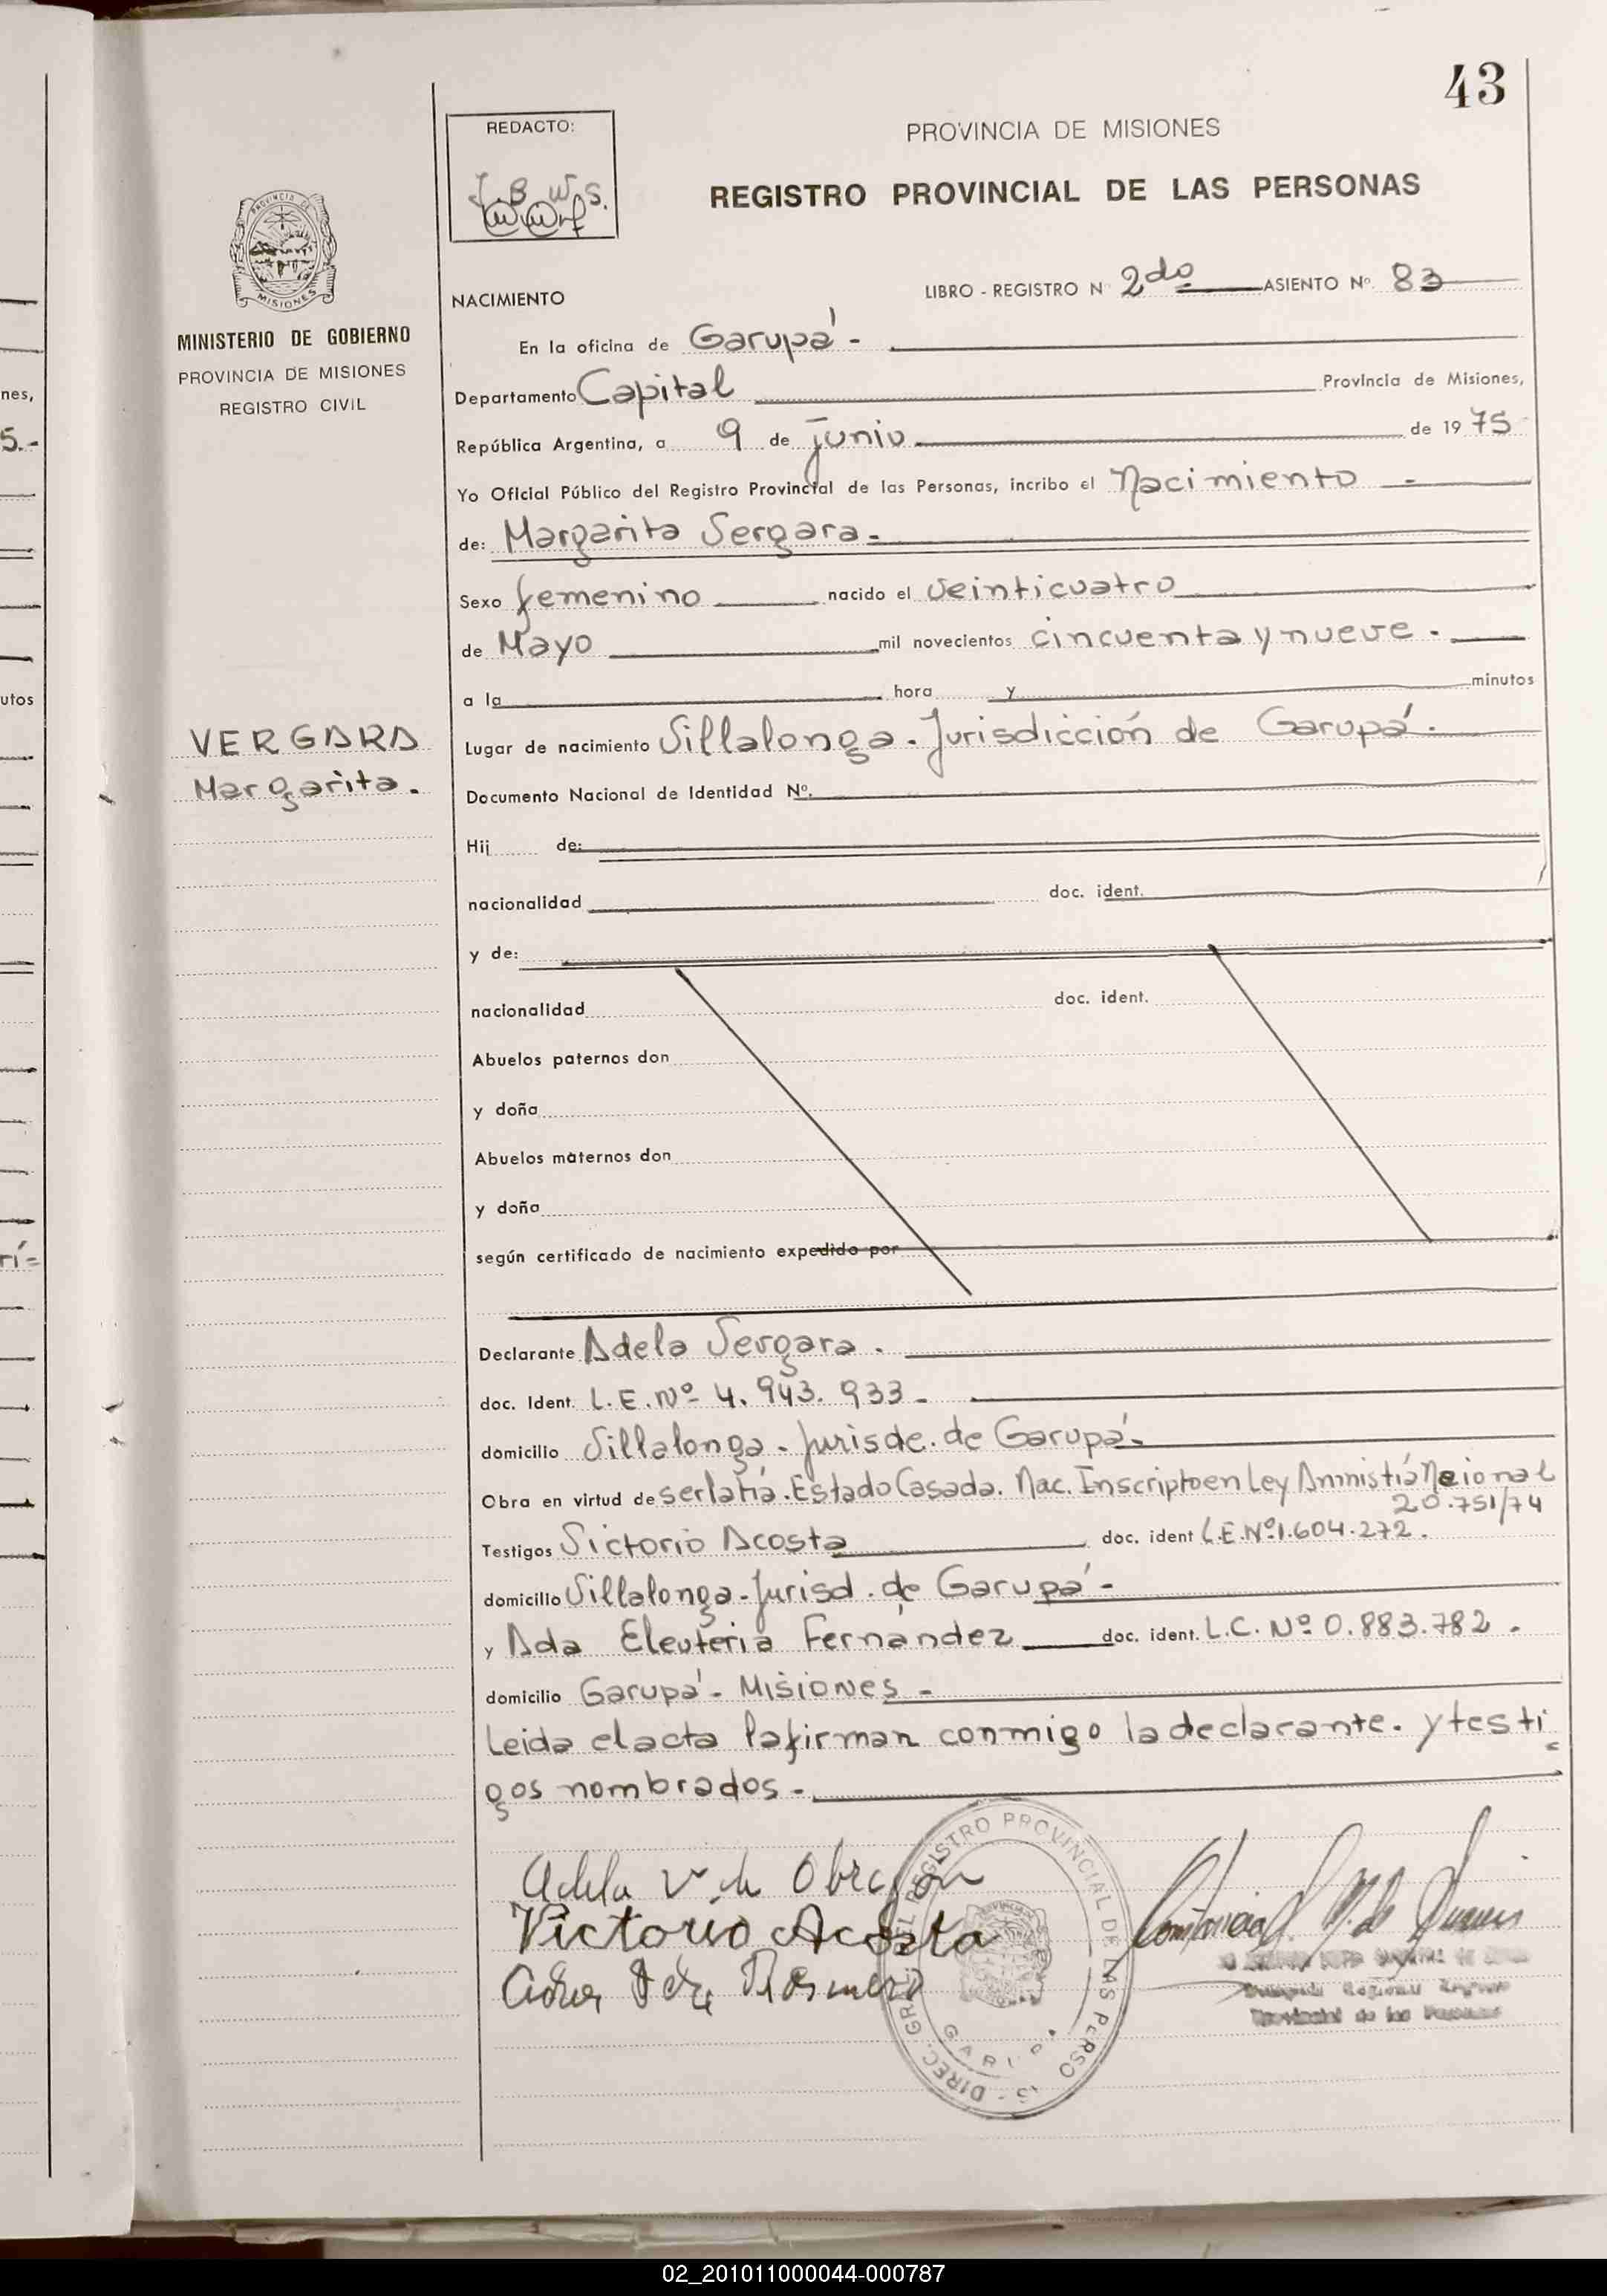 43
REDACTO:
J. B. W. S.
PROVINCIA DE MISIONES
REGISTRO PROVINCIAL DE LAS PERSONAS
PROVINCIA DE
MISIONES
MINISTERIO DE GOBIERNO
PROVINCIA DE MISIONES
REGISTRO CIVIL
NACIMIENTO
LIBRO - REGISTRO Nº 2do ASIENTO Nº. 83
En la oficina de Garupá -
Departamento Capital Provincia de Misiones,
República Argentina, a 9 de junio de 1975
Yo Oficial Público del Registro Provincial de las Personas, incribo el Nacimiento -
de: Margarita Vergara -
Sexo femenino nacido el veinticuatro
de Mayo mil novecientos cincuenta y nueve .
a la hora y minutos
VERGARA
Margarita.
Lugar de nacimiento Villalonga. Jurisdicción de Garupá.
Documento Nacional de Identidad Nº.
Hij de:
nacionalidad doc. ident.
y de:
nacionalidad doc. ident.
Abuelos paternos don
y doña
Abuelos maternos don
y doña
según certificado de nacimiento expedido por
Declarante Adela Vergara .
doc. Ident. L.E. Nº 4.943.933 -
domicilio Villalonga - Jurisde. de Garupá -
Obra en virtud de serlatía. Estado Casada. Nac. Inscripto en Ley Aministía Nacional
20.751/74
Testigos Victorio Acosta doc. ident L.E. Nº 1.604.272.
domicilio Villalonga - Jurisd. de Garupá -
y Ada Eleuteria Fernández doc. ident. L.C. Nº 0.883.782 .
domicilio Garupá - Misiones -
Leida el acta la firman conmigo la declarante. y testi
gos nombrados -
Adela V. de Obregon
Victorio Acosta
DIREC. GRAL. DEL REGISTRO PROVINCIAL DE LAS PERSO S
Provincial de las Personas
nes,
5.-
utos
rí=
02_201011000044-000787